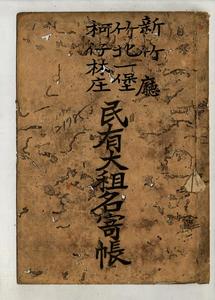 新竹廳
竹北一堡
柯仔林庄
民有大租名寄帳